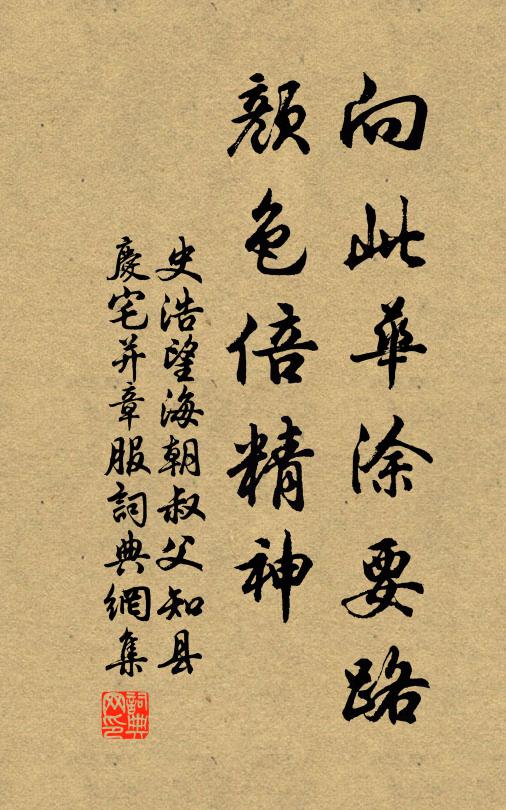 向此華涂要路
顏色倍精神
史浩望海朝叔父知县
慶宅并章服詞典網集
詞典网印